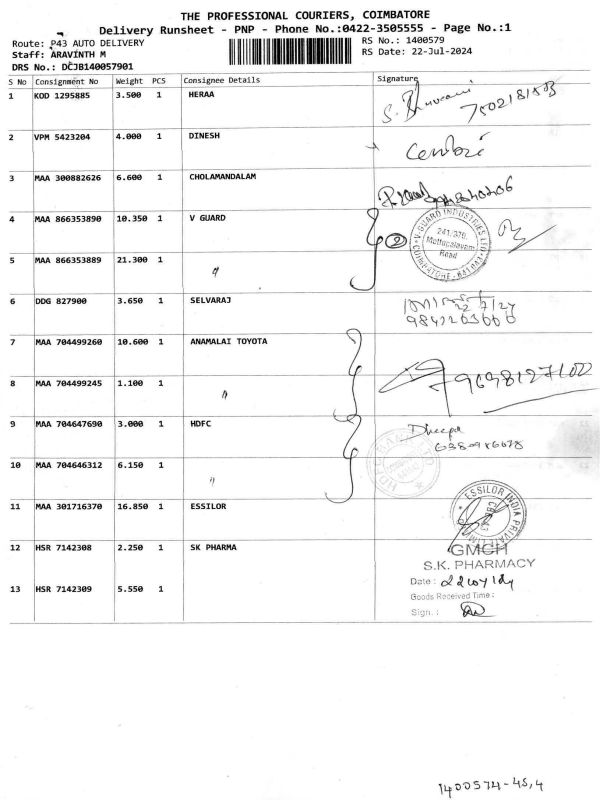 THE PROFESSIONAL COURIERS, COIMBATORE
Delivery Runsheet - PNP - Phone No.:0422-3505555 - Page No.:1
Route: P43 AUTO DELIVERY
RS No.: 1400579
Staff: ARAVINTH M
RS Date: 22-Jul-2024
DRS No.: DCJB140057901
S No Consignment No Weight PCS Consignee Details Signature
1 KOD 1295885 3.500 1 HERAA
2 VPM 5423204 4.000 1 DINESH
3 MAA 300882626 6.600 1 CHOLAMANDALAM
4 MAA 866353890 10.350 1 V GUARD
V GUARD INDUSTRIES LTD
241, 379,
Mettupalayam
Road
5 MAA 866353889 21.300 1 〃
6 DDG 827900 3.650 1 SELVARAJ
7 MAA 704499260 10.600 1 ANAMALAI TOYOTA
8 MAA 704499245 1.100 1 〃
9 MAA 704647690 3.000 1 HDFC
Dheepa
10 MAA 704646312 6.150 1 〃
11 MAA 301716370 16.850 1 ESSILOR
ESSILOR INDIA PRIVATE LIMITED
12 HSR 7142308 2.250 1 SK PHARMA
GMCH
S.K. PHARMACY
13 HSR 7142309 5.550 1
Date :
Goods Received Time :
Sign. :
1400574-45,4